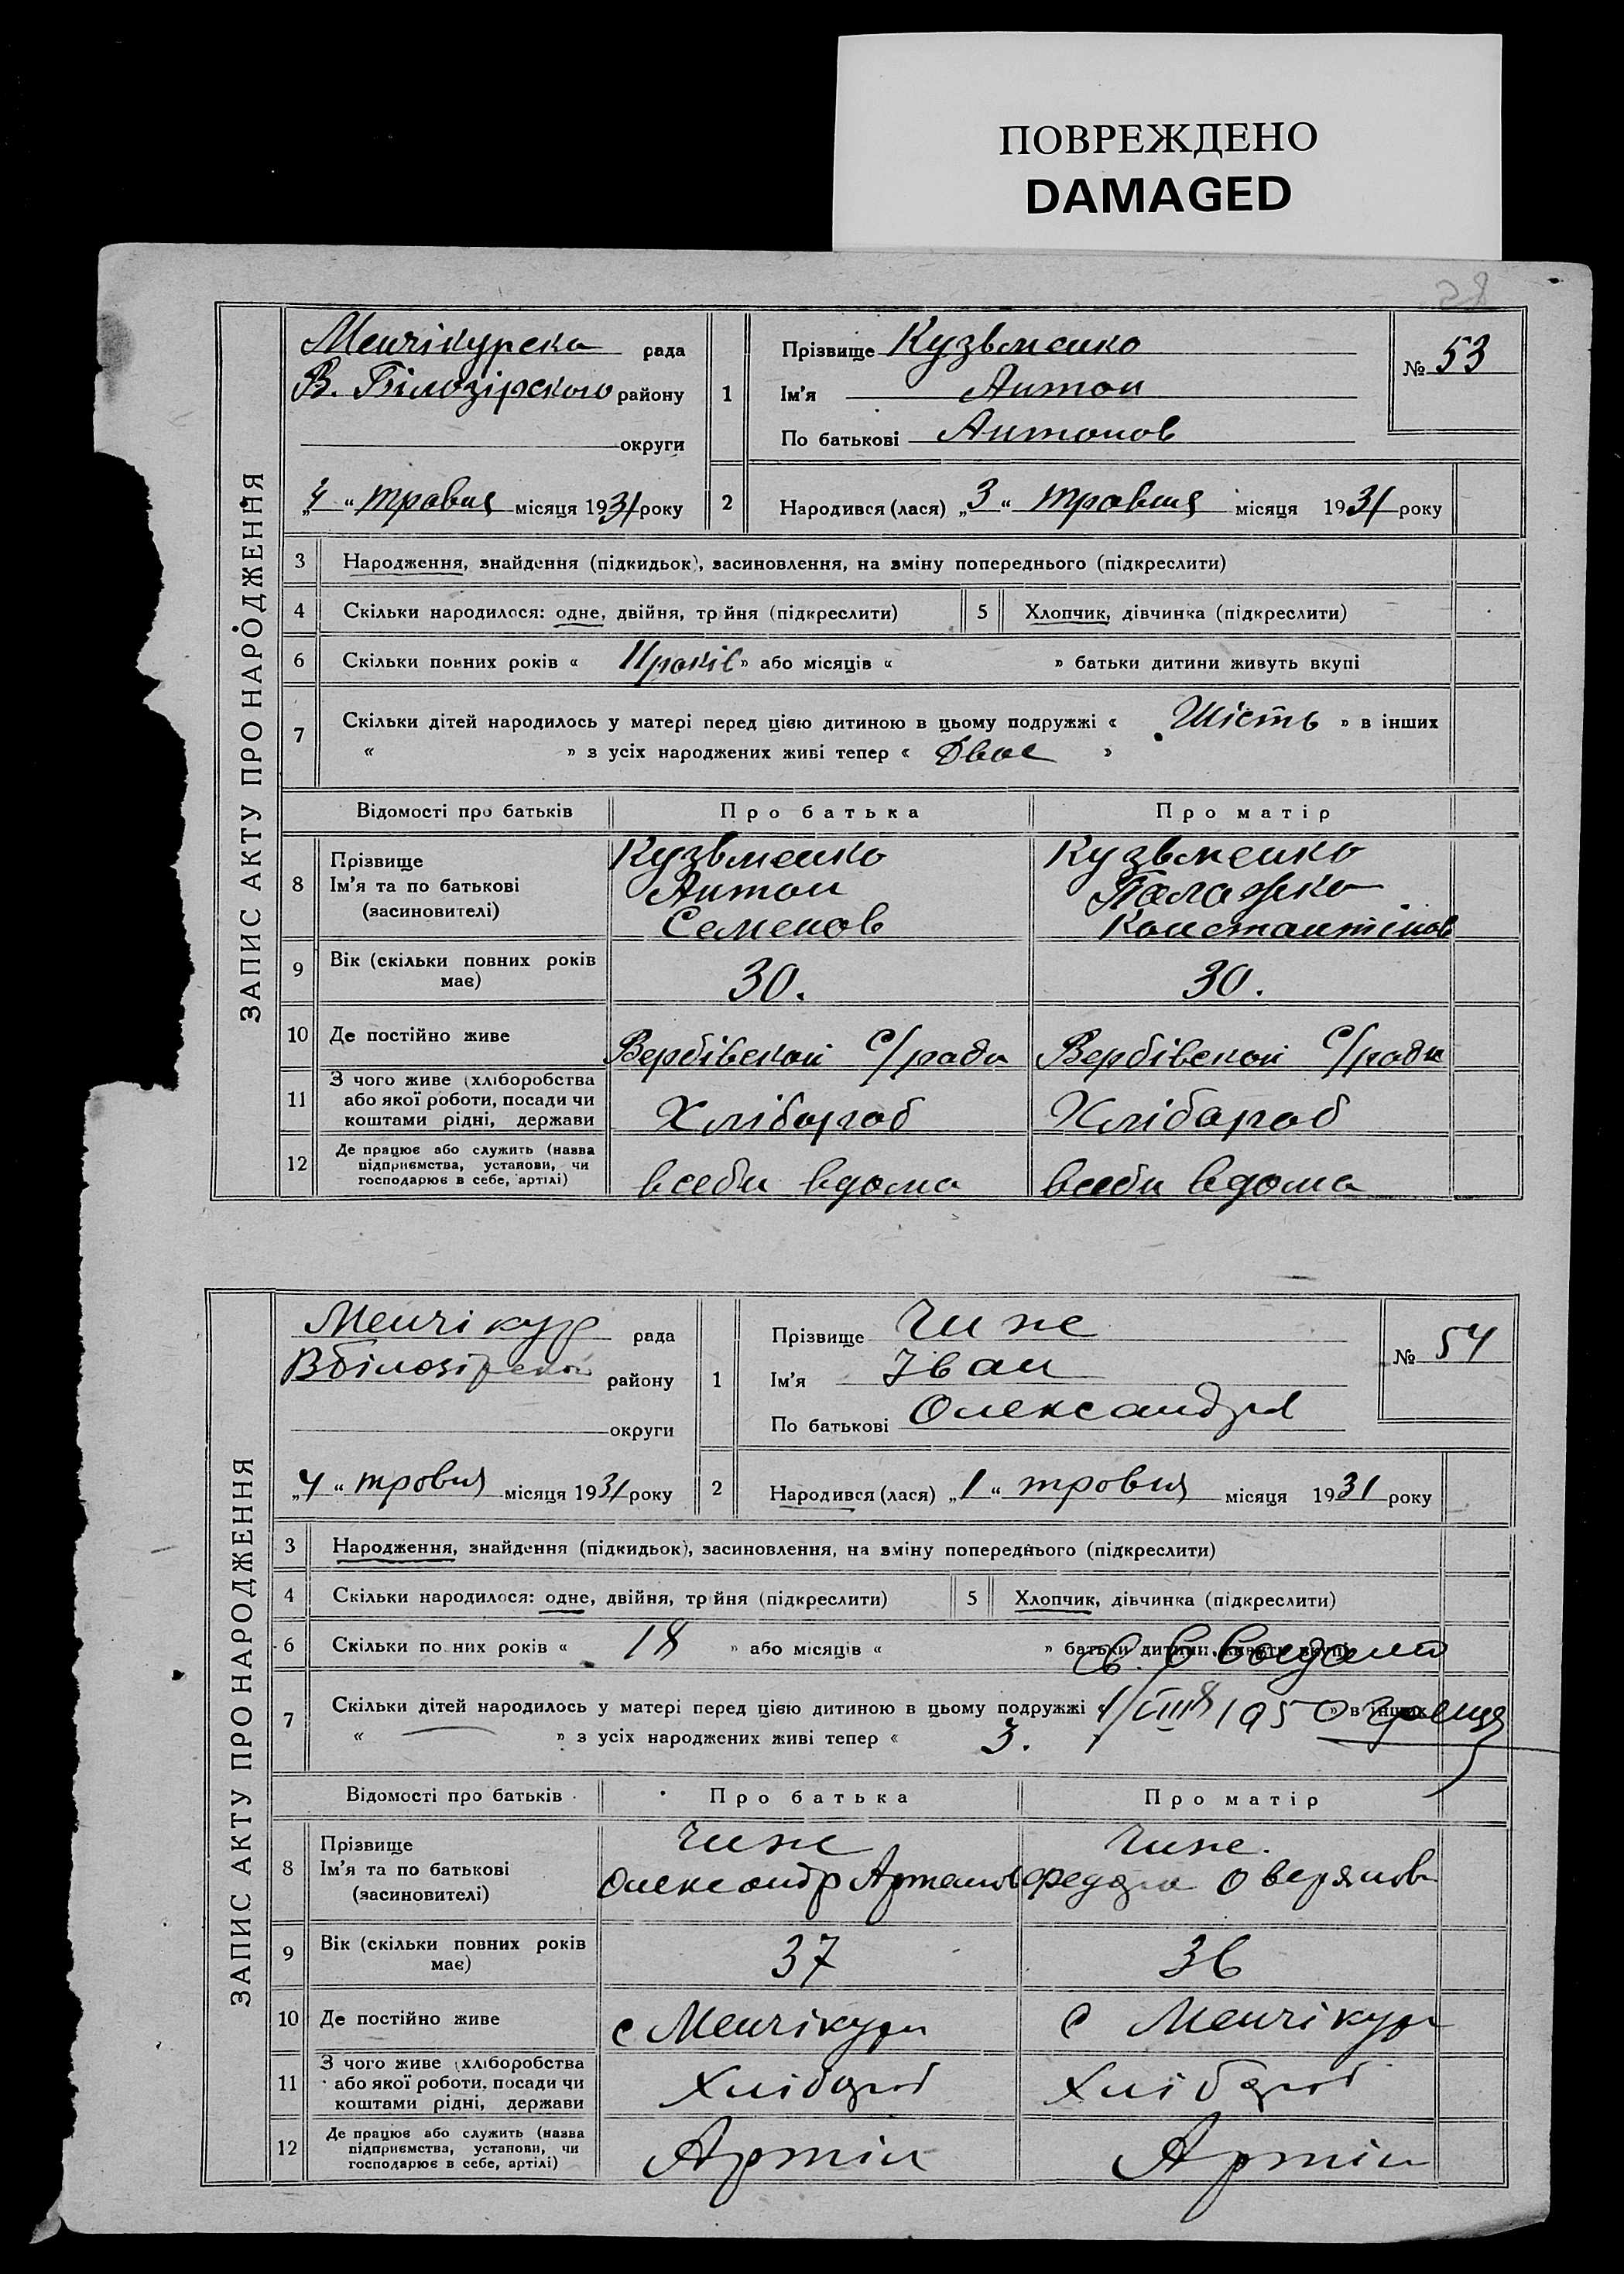 ПОВРЕЖДЕНО
DAMAGED
28
ЗАПИС АКТУ ПРО НАРОДЖЕННЯ
Менчікурска рада
В. Білозірского району
округи
„4“ травня місяця 1931 року
1
Прізвище Кузьменко
Ім'я Антон
По батькові Антонов
№ 53
2 Народився (лася) „3“ травня місяця 1931 року
3 Народження, знайдення (підкидьок), засиновлення, на зміну попереднього (підкреслити)
4 Скільки народилося: одне, двійня, трійня (підкреслити) 5 Хлопчик, дівчинка (підкреслити)
6 Скільки повних років « 11 років » або місяців « » батьки дитини живуть вкупі
7 Скільки дітей народилось у матері перед цією дитиною в цьому подружжі « Шість » в інших
« » з усіх народжених живі тепер « Двое »
Відомості про батьків Про батька Про матір
8 Прізвище Кузьменко Кузьменко
Ім'я та по батькові Антон Палажка
(засиновителі) Семенов Константінов
9 Вік (скільки повних років має) 30. 30.
10 Де постійно живе Вербівской с/ради Вербівской с/ради
11 З чого живе (хліборобства
або якої роботи, посади чи
коштами рідні, держави Хлібороб Хлібороб
12 Де працює або служить (назва
підприємства, установи, чи
господарює в себе, артілі) всеби вдома всеби вдома
ЗАПИС АКТУ ПРО НАРОДЖЕННЯ
Менчікур рада
Вбілозірской району
округи
„4“ тровня місяця 1931 року
1
Прізвище Чиже
Ім'я Іван
По батькові Олександря
№ 54
2 Народився (лася) „1“ тровня місяця 1931 року
3 Народження, знайдення (підкидьок), засиновлення, на зміну попереднього (підкреслити)
4 Скільки народилося: одне, двійня, трійня (підкреслити) 5 Хлопчик, дівчинка (підкреслити)
6 Скільки повних років « 18 » або місяців « » батьки дитини живуть вкупі
7 Скільки дітей народилось у матері перед цією дитиною в цьому подружжі « 1950 » в інших
« » з усіх народжених живі тепер « 3.
Відомості про батьків Про батька Про матір
8 Прізвище Чиже Чиже.
Ім'я та по батькові Олександр Артемов Федора Оверянов
(засиновителі)
9 Вік (скільки повних років має) 37 36
10 Де постійно живе с Менчікури с Менчікури
11 З чого живе (хліборобства
або якої роботи, посади чи
коштами рідні, держави Хлібороб Хлібороб
12 Де працює або служить (назва
підприємства, установи, чи
господарює в себе, артілі) Артіли Артіли